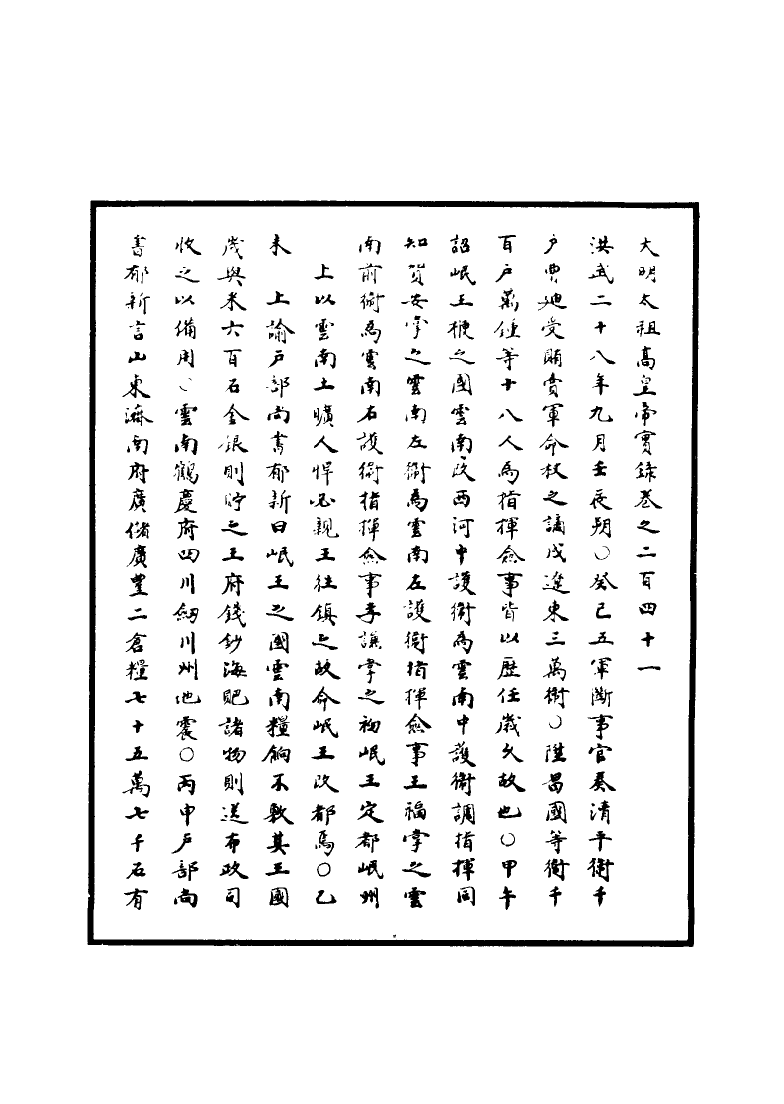 大明太祖高皇帝實錄卷之二百四十一
洪武二十八年九月壬辰朔○癸巳五軍斷事官奏清平衛千
戶曹廸受賄賣軍命杖之謫戍遼東三萬衛○陞昌國等衛千
百戶萬鍾等十八人為指揮僉事皆以歷任歲久故也○甲午
詔岷王楩之國雲南改西河中護衛為雲南中護衛調指揮同
知賀安掌之雲南左衛為雲南左護衛指揮僉事王福掌之雲
南前衛為雲南右護衛指揮僉事李讓掌之初岷王定都岷州
上以雲南土曠人悍必親王往鎮之故命岷王改都焉○乙
未　上諭戶部尚書郁新曰岷王之國雲南糧餉不敷其王國
歲與米六百石金銀則貯之王府錢鈔海𧵅諸物則送布政司
收之以備用○雲南鶴慶府四川劍川州地震○丙申戶部尚
書郁新言山東濟南府廣儲廣豐二倉糧七十五萬七千石有